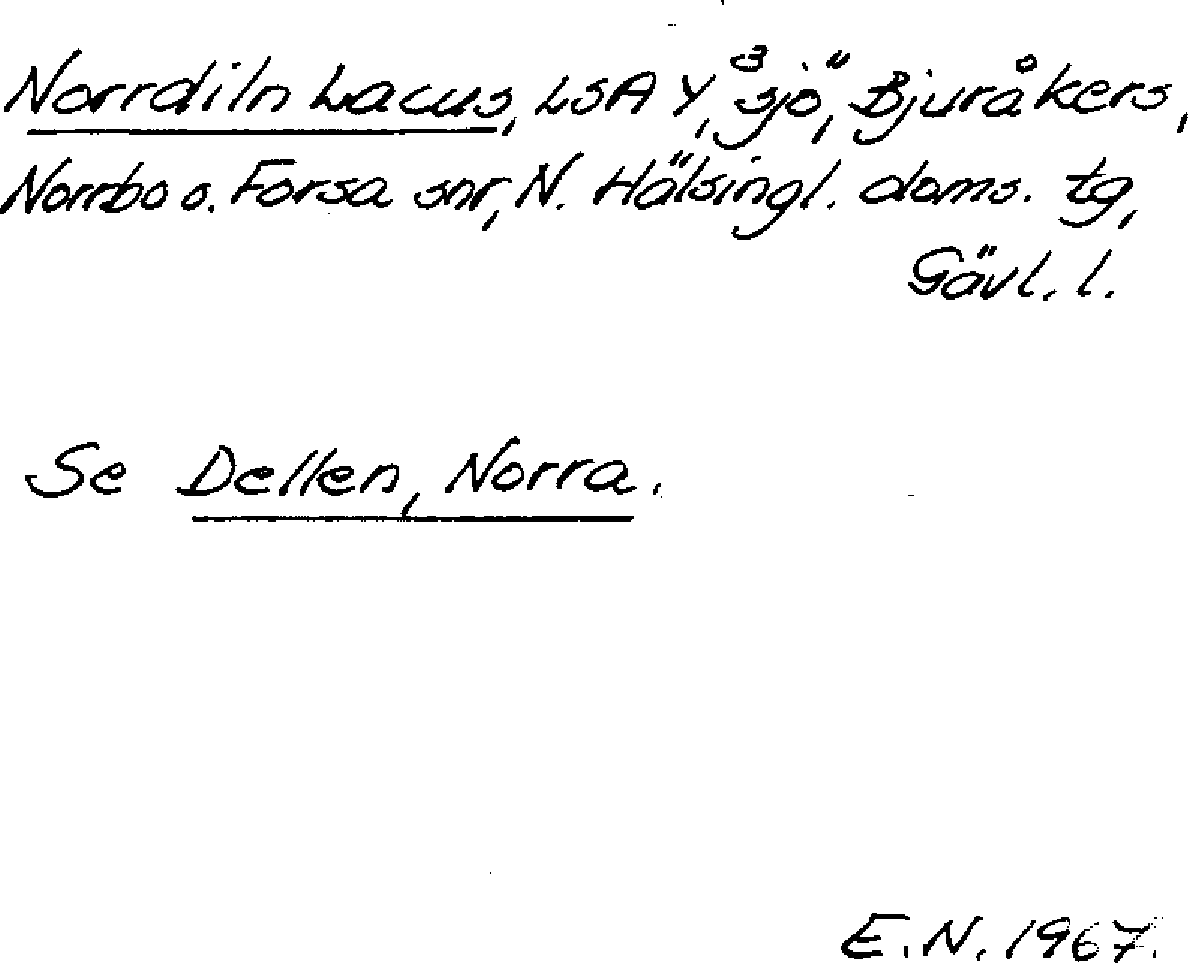 Norrdiln Lacus, LSA Y,³ sjö, Bjuråkers,
Norrbo o. Forsa snr, N. Hälsingl. doms. tg,
Gävl. l.
Se Dellen, Norra.
E.N. 1967.